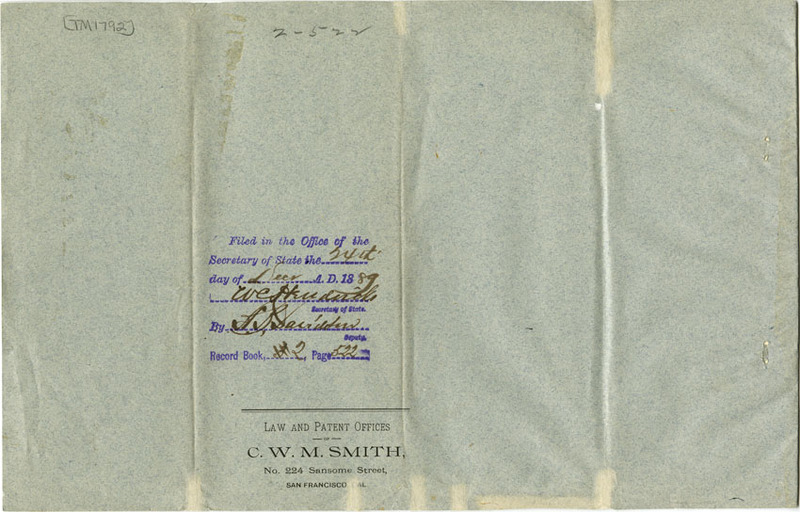 [TM1792]
2-522
Filed in the Office of the
Secretary of State the 24th
day of Decr A. D. 1889
W C Hendricks
Secretary of State.
By
Deputy.
Record Book, #2, Page 522
LAW AND PATENT OFFICES
OF
C. W. M. SMITH,
No. 224 Sansome Street,
SAN FRANCISCO CAL